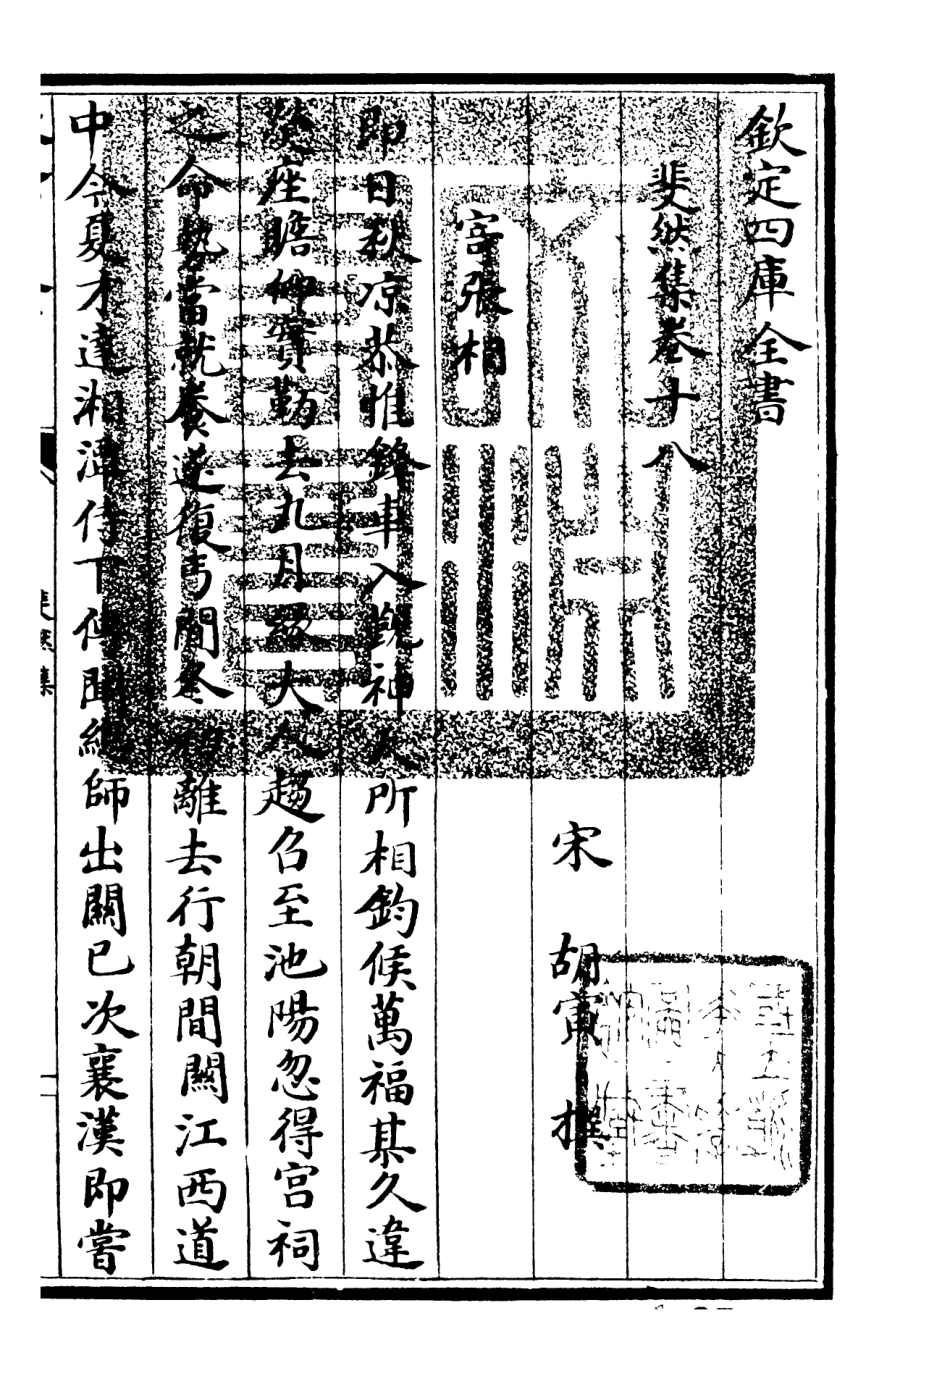 欽定四庫全書
斐然集卷十八
宋 胡寅 撰
寄張相
即日秋凉恭惟鋒車入覲神人所相鈞候萬福某久違
燮座瞻仰實勤去九月緣大人趨召至池陽忽得宫祠
之命勢當就養遂復丐閒冬初離去行朝間闗江西道
中今夏才達湘潭侍下傳聞總師出闗已次襄漢即嘗
文淵閣寶
斐然集